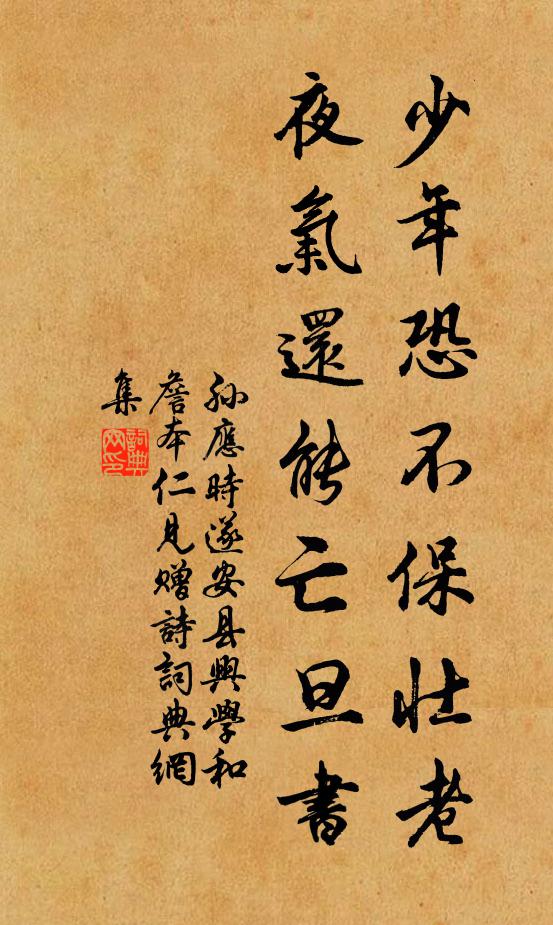 少年恐不保壮老
夜氣還能亡旦書
孙應時遂安县興學和
詹本仁見赠詩詞典網
集
詞典
网印